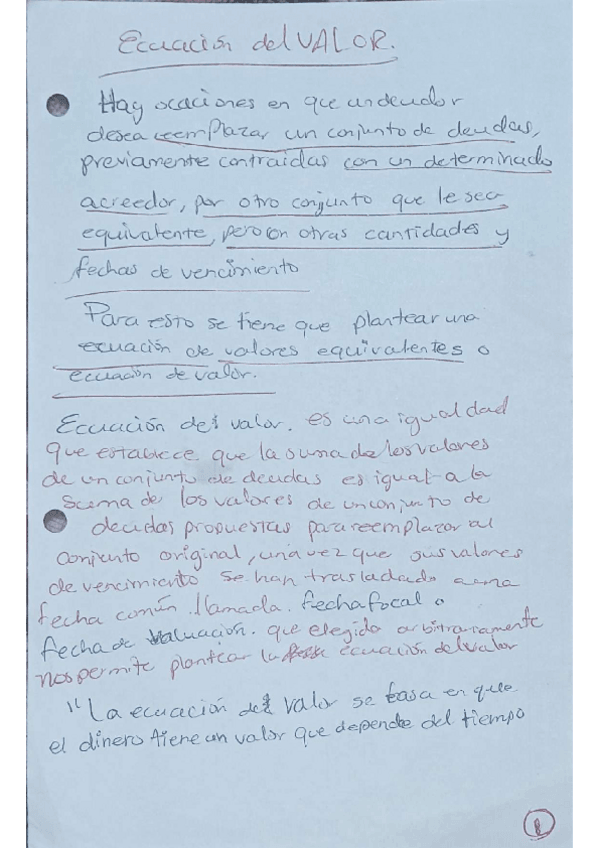 Ecuación del VALOR.
Hay ocaciones en que un deudor
desea reemplazar un conjunto de deudas,
previamente contraidas con un determinado
acreedor, por otro conjunto que le sea
equivalente, pero en otras cantidades y
fechas de vencimiento
Para esto se tiene que plantear una
ecuación de valores equivalentes o
ecuación de valor.
Ecuación del valor. es una igualdad
que establece que la suma de los valores
de un conjunto de deudas es igual a la
suma de los valores de un conjunto de
deudas propuestas para reemplazar al
conjunto original, una vez que sus valores
de vencimiento se han trasladado a una
fecha común llamada. fecha focal o
fecha de valuación. que elegida arbitrariamente
nos permite plantear la ecuación del valor
"La ecuación del valor se basa en que
el dinero tiene un valor que depende del tiempo